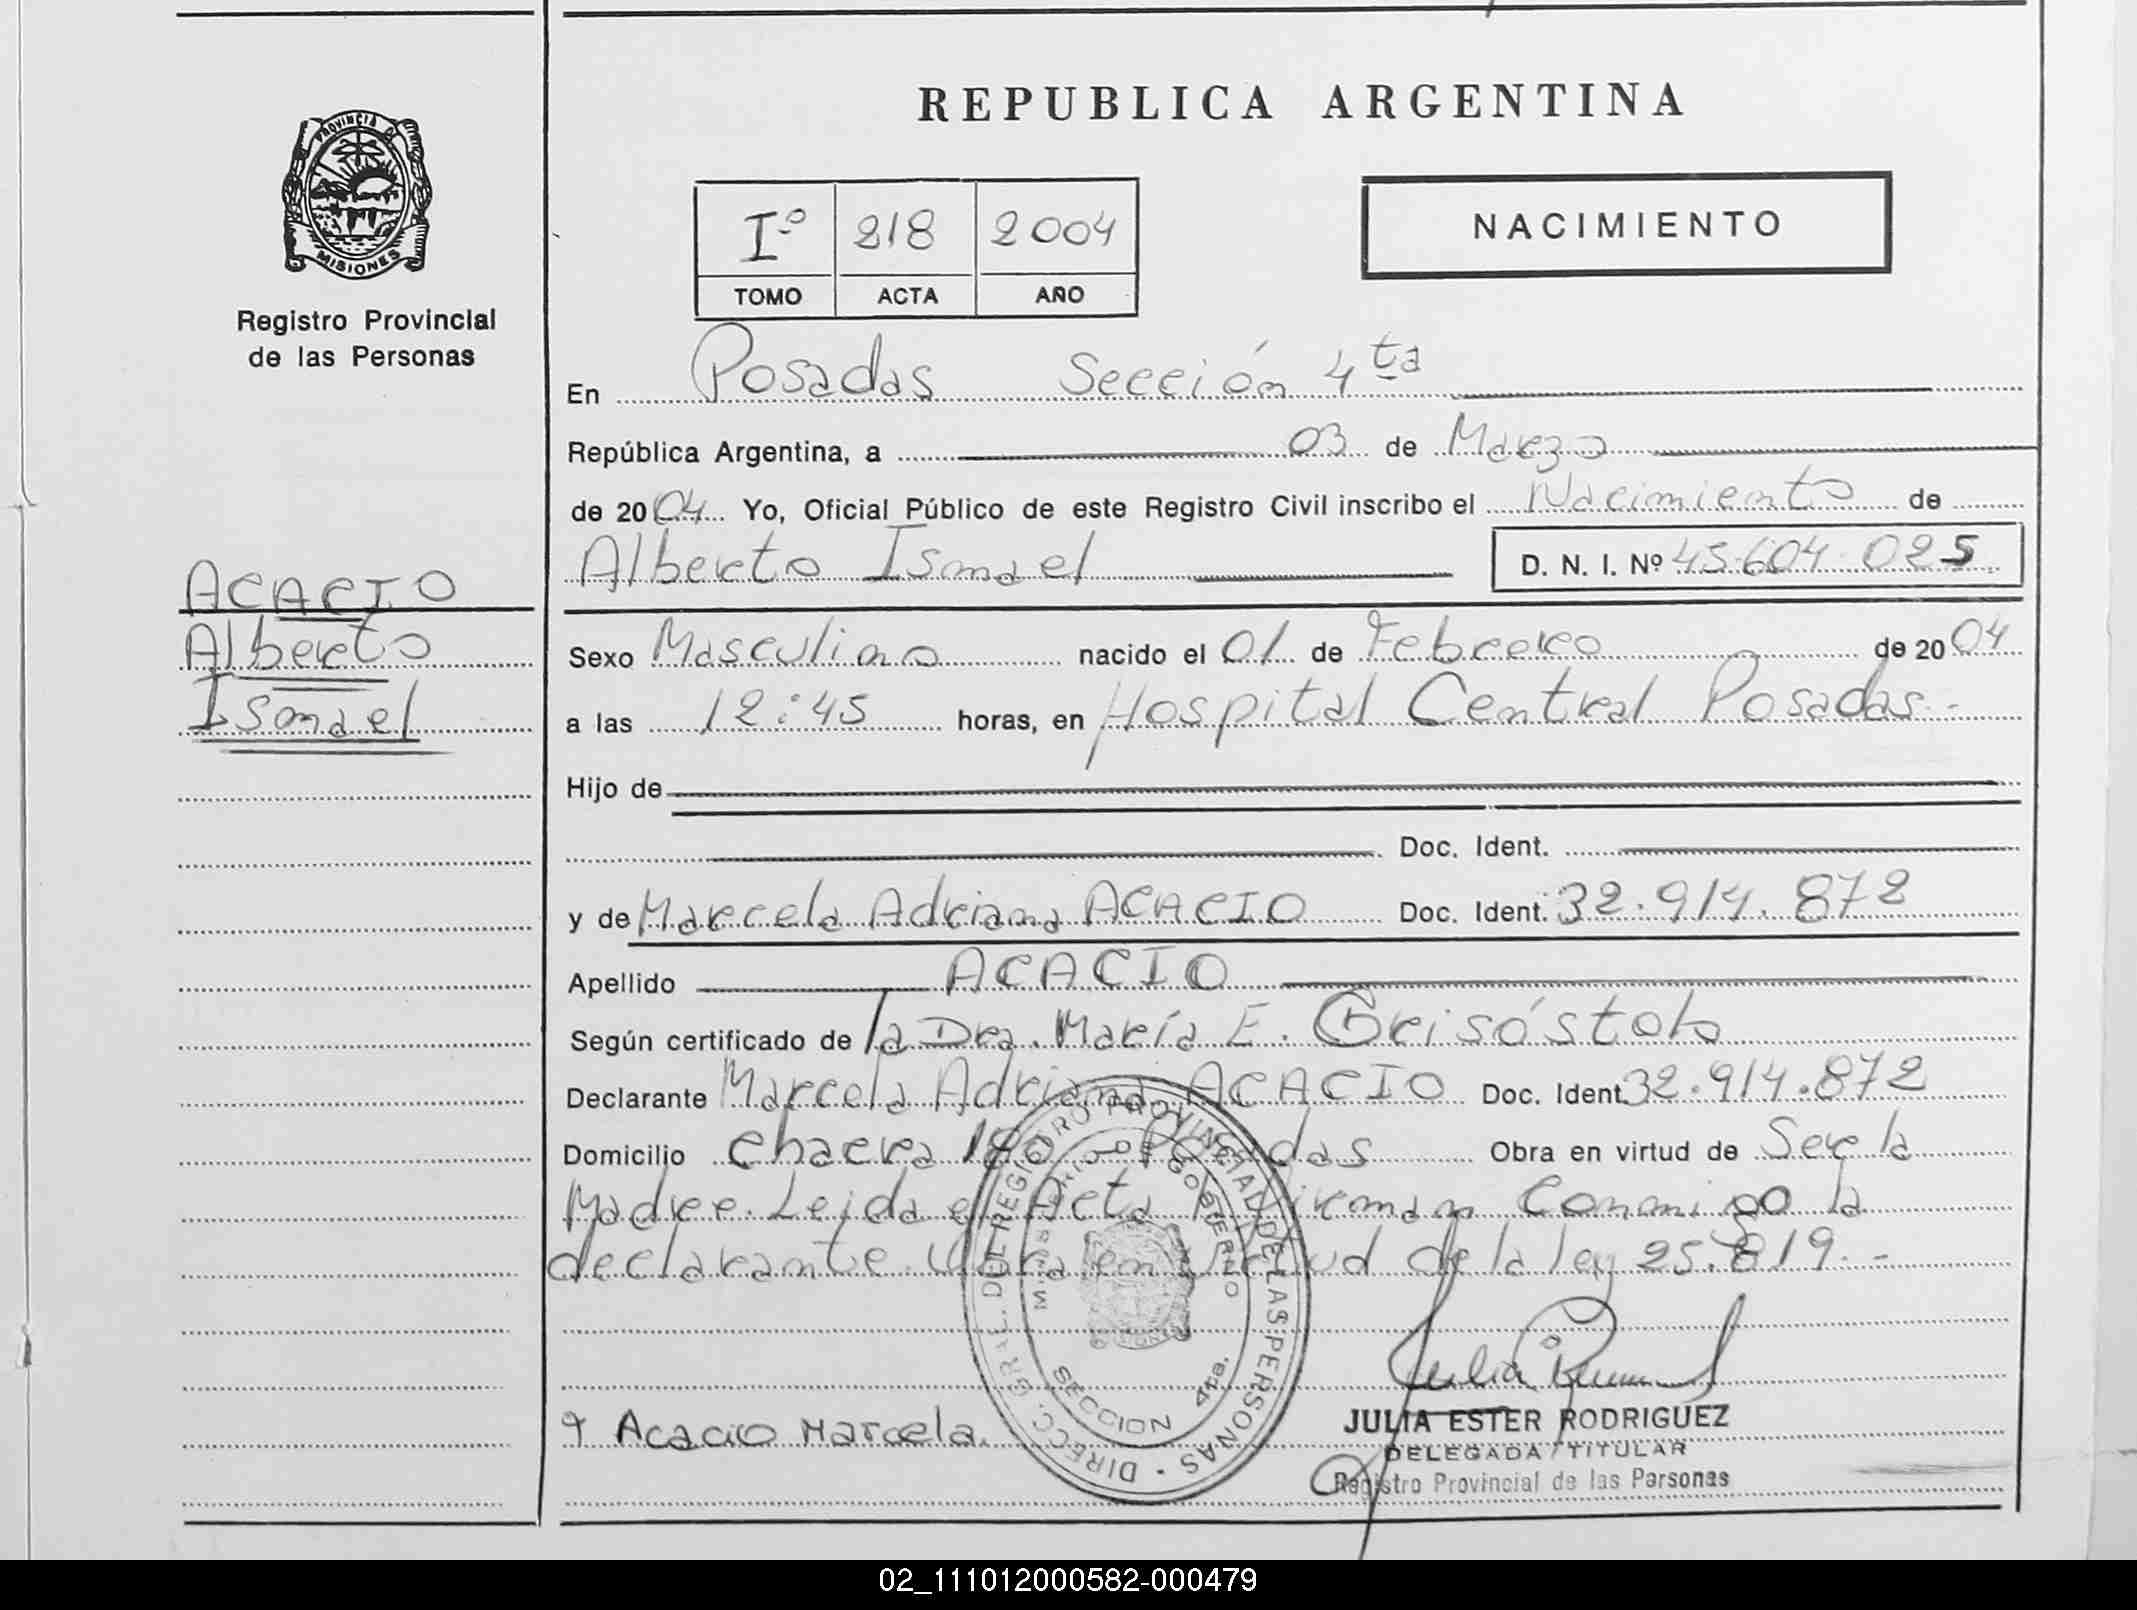 REPUBLICA ARGENTINA
PROVINCIA DE
MISIONES
Registro Provincial
de las Personas
Iº 218 2004
TOMO ACTA AÑO
NACIMIENTO
En Posadas Sección 4ta
República Argentina, a 03 de Marzo
de 2004 Yo, Oficial Público de este Registro Civil inscribo el Nacimiento de
Alberto Ismael D. N. I. Nº 45.604.025
ACACIO
Alberto
Ismael
Sexo Masculino nacido el 01 de Febrero de 2004
a las 12:45 horas, en Hospital Central Posadas.-
Hijo de
Doc. Ident.
y de Marcela Adriana ACACIO Doc. Ident. 32.914.872
Apellido ACACIO
Según certificado de la Dra. María E. Grisóstolo
Declarante Marcela Adriana ACACIO Doc. Ident. 32.914.872
Domicilio Chacra 180 Posadas Obra en virtud de Ser la
Madre. Leida el Acta Firman Conmigo la
declarante. Obra en virtud de la ley 25.819.-
DIRECC. GRAL. DEL REGISTRO PROVINCIAL DE LAS PERSONAS
MINISTERIO DE GOBIERNO
SECCION 4ta.
Acacio Marcela.
JULIA ESTER RODRIGUEZ
DELEGADA TITULAR
Registro Provincial de las Personas
02_111012000582-000479